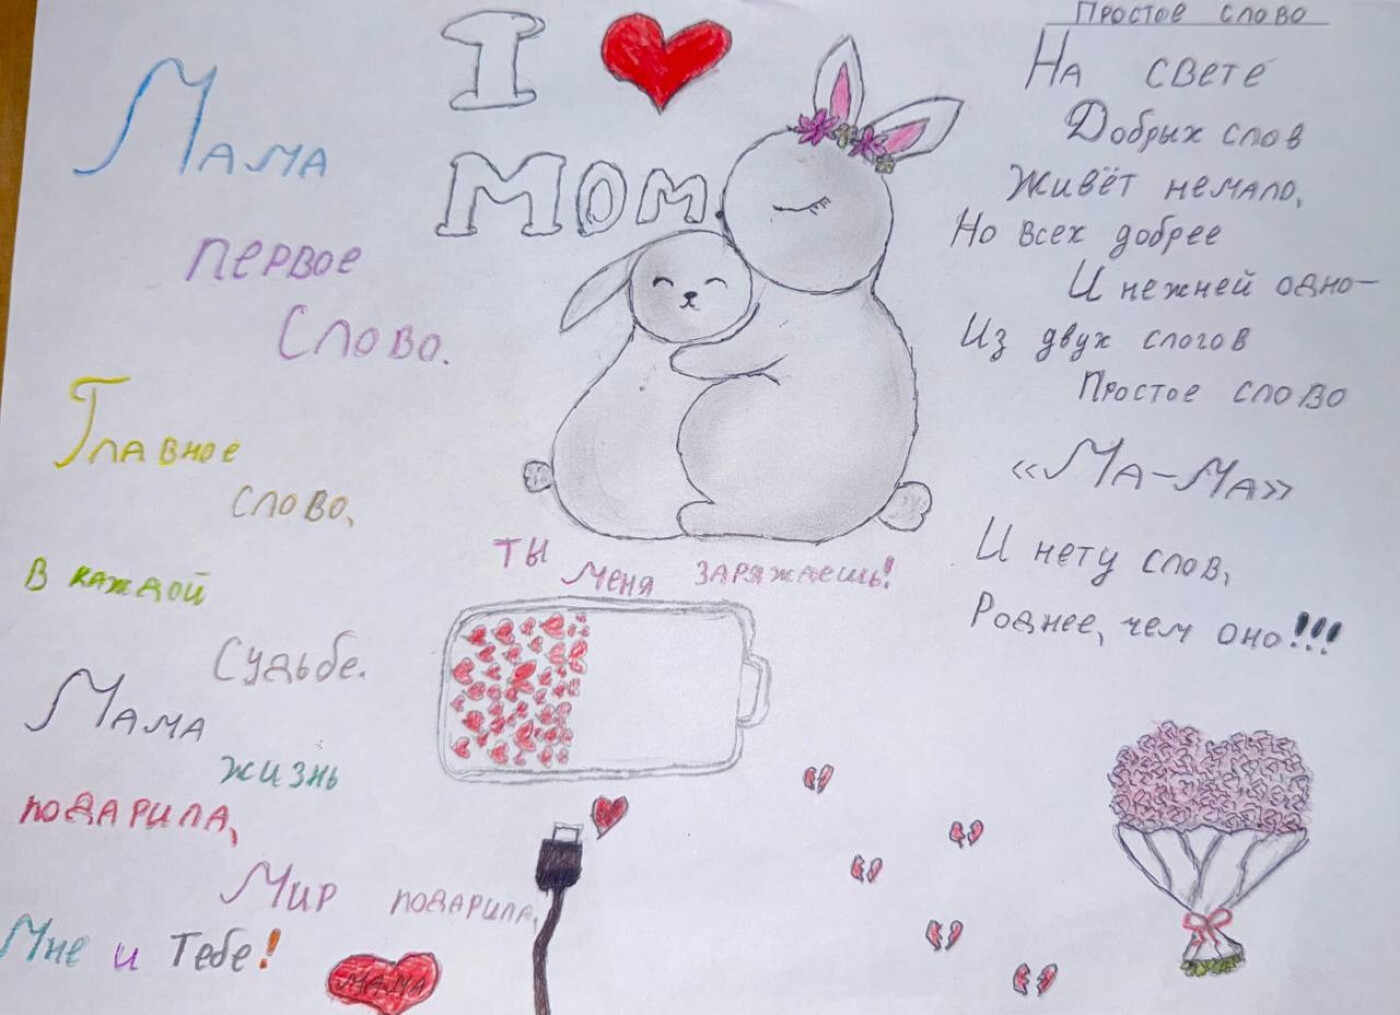 Мама
первое
Слово.
Главное
слово,
в каждой
Судьбе.
Мама
жизнь
подарила,
Мир подарила,
Мне и Тебе!
мама
I
Mom.
Ты меня заряжаешь!
Простое слово
На свете
Добрых слов
Живёт немало,
Но всех добрее
И нежней одно-
Из двух слогов
Простое слово
«Ма-Ма»
И нету слов,
Роднее, чем оно!!!